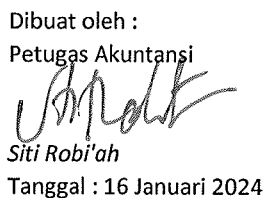 Dibuat oleh :
Petugas Akuntansi
Siti Robi'ah
Tanggal : 16 Januari 2024